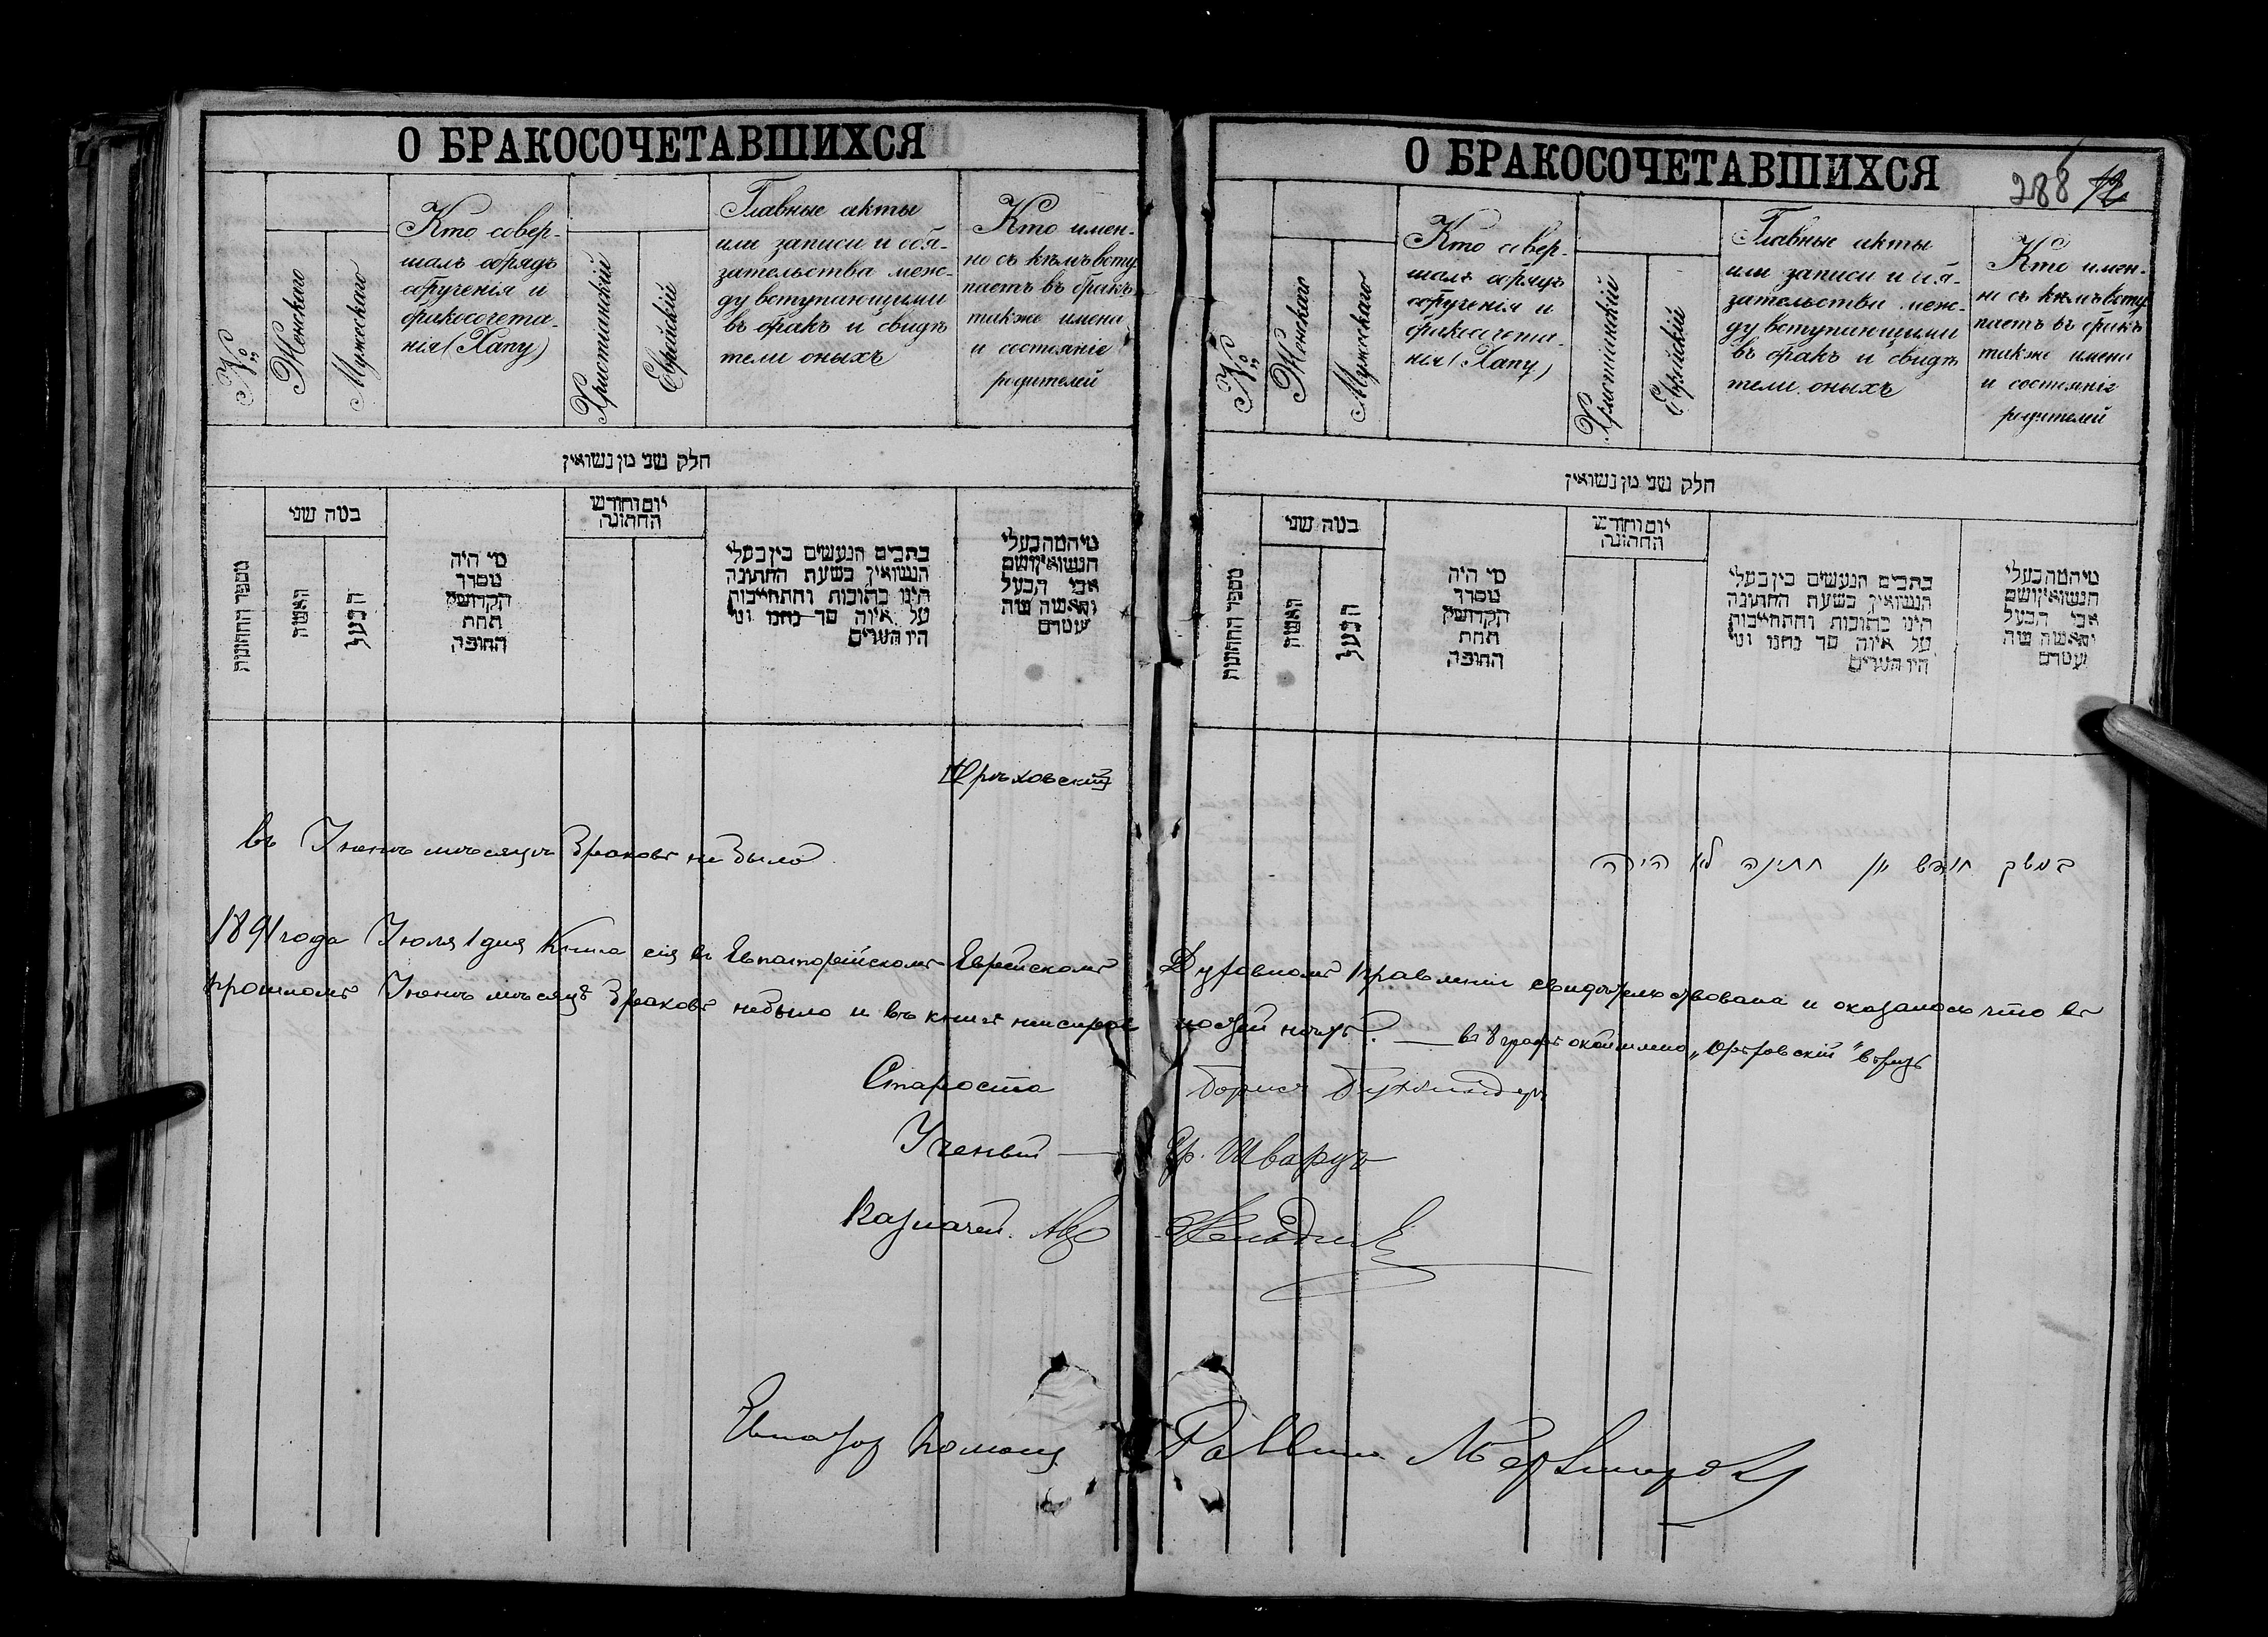 О БРАКОСОЧЕТАВШИХСЯ
№
Женскаго
Мужескаго
Кто совер-
шалъ обрядъ
обрученія и
бракосочета-
нія (Хапу)
Христіанскій
Еврейскій
Главные акты
или записи и обя-
зательства меж-
ду вступающими
въ бракъ и свидѣ
тели оныхъ
Кто имен-
но съ кѣмъ всту
паетъ въ бракъ
также имена
и состояніе
родителей
חלק שני מן נשואין
מספר החתונות
כמה שני
האשה
הבעל
מי היה
מסדר
הקדושין
תחת
החופה
יום וחודש
החתונה
כתבים הנעשים בין בעלי
הנשואין בשעת החתונה
הינו כתובות והתחייבות
על איזה סך נתנו ומי
היו העדים
מיהמה בעלי
הנשואין ושם
אבי הבעל
והאשה ומה
עשרם
Орѣховскій
въ Іюнѣ мѣсяцѣ браковъ не было
О БРАКОСОЧЕТАВШИХСЯ
288 12
№
Женскаго
Мужескаго
Кто совер-
шалъ обрядъ
обрученія и
бракосочета-
нія (Хапу)
Христіанскій
Еврейскій
Главные акты
или записи и обя-
зательства меж-
ду вступающими
въ бракъ и свидѣ
тели оныхъ
Кто имен-
но съ кѣмъ всту
паетъ въ бракъ
также имена
и состояніе
родителей
חלק שני מן נשואין
מספר החתונות
כמה שני
האשה
הבעל
מי היה
מסדר
הקדושין
תחת
החופה
יום וחודש
החתונה
כתבים הנעשים בין בעלי
הנשואין בשעת החתונה
הינו כתובות והתחייבות
על איזה סך נתנו ומי
היו העדים
מיהמה בעלי
הנשואין ושם
אבי הבעל
והאשה ומה
עשרם
במשך חודש יון חתונה לא היתה
1891 года Іюля 1 дня Книга сія въ Евпаторійскомъ Еврейскомъ Духовномъ Правленіи свидѣтельствована и оказалось что въ
прошломъ Іюнѣ мѣсяцѣ браковъ небыло и въ книгѣ неисправностей нѣтъ. — въ 8 графѣ окаймлено „Орѣховскій"
Староста Борисъ
Ученый — Гр. Шварцъ
Казначей
Евпатор Помощ Раввина